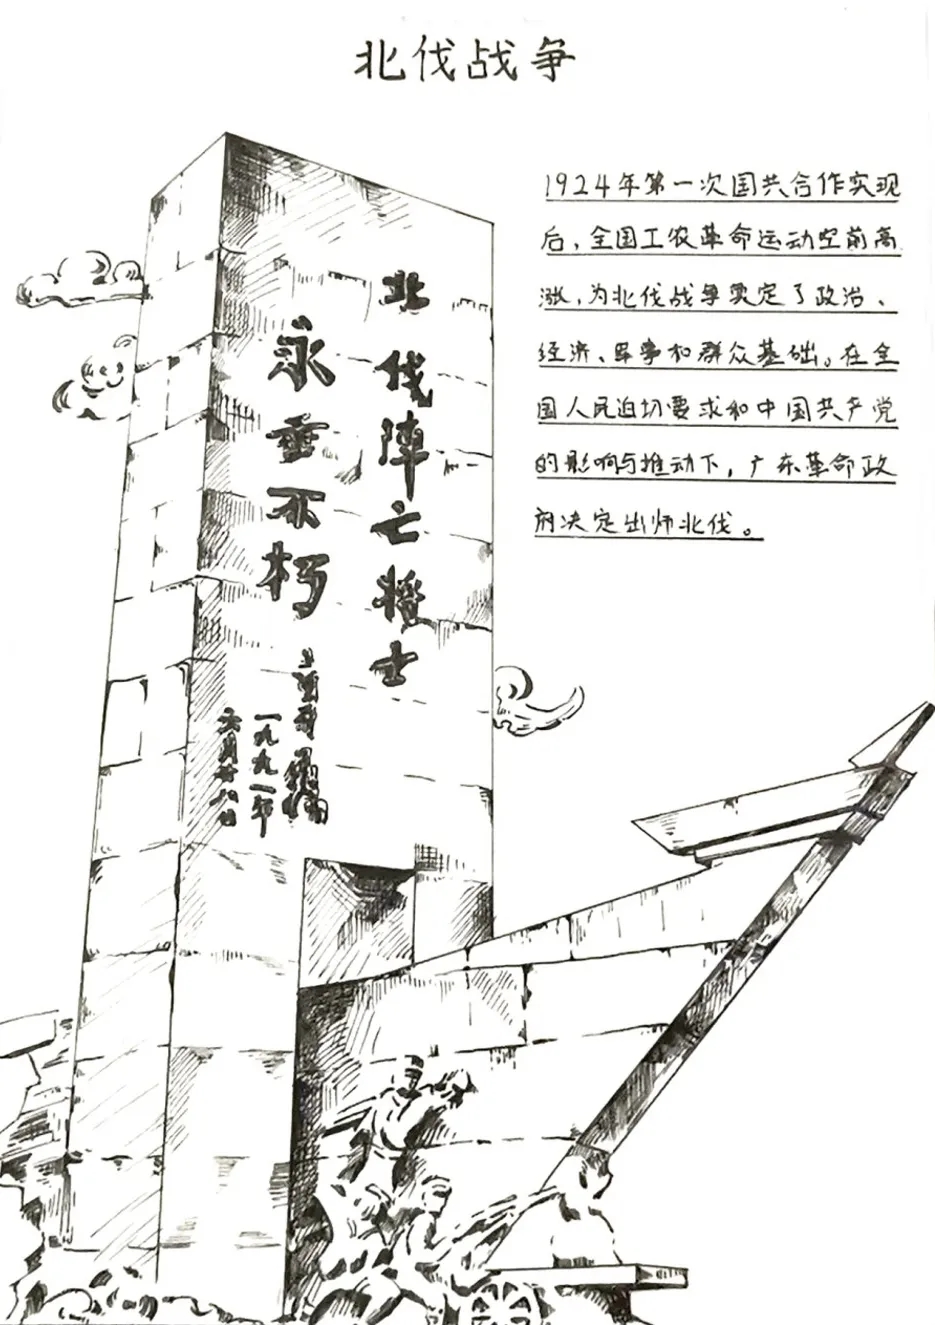 北伐战争
1924年第一次国共合作实现
后，全国工农革命运动空前高
涨，为北伐战争奠定了政治、
经济、军事和群众基础。在全
国人民迫切要求和中国共产党
的影响与推动下，广东革命政
府决定出师北伐。
北伐陣亡将士
永垂不朽
一九九一年
六月廿八日